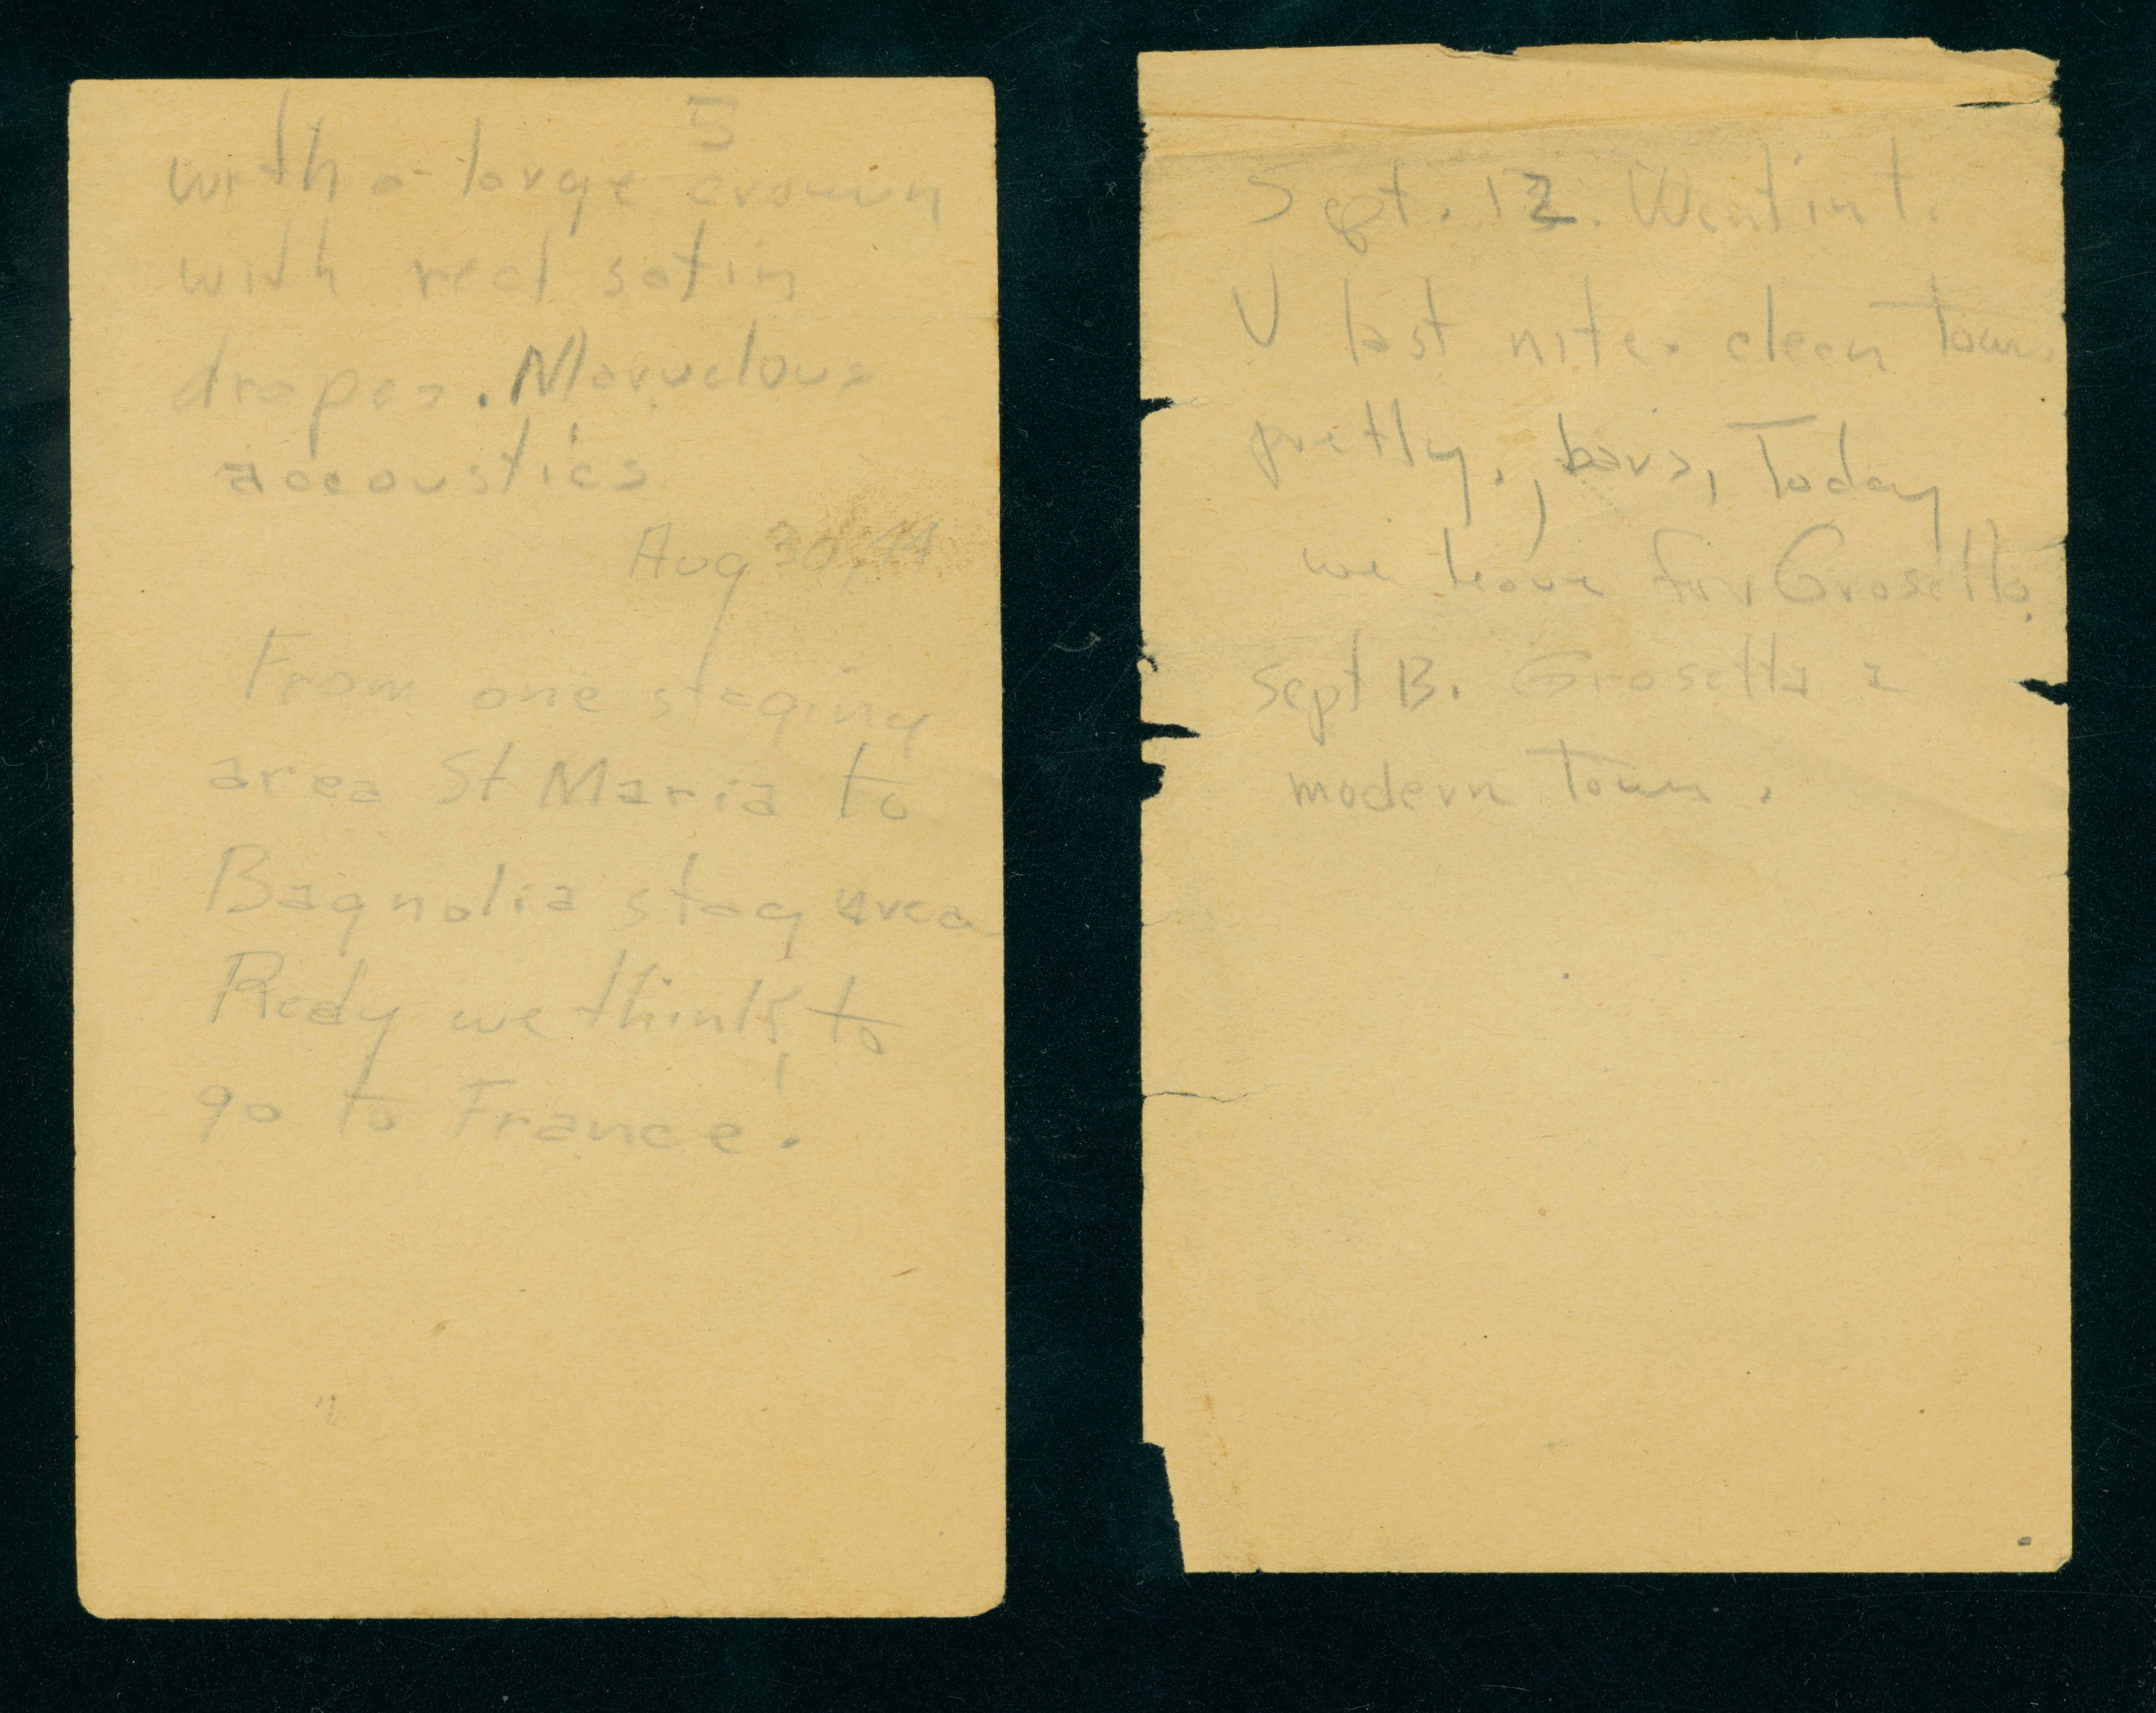 5
with a large crown
with red satin
drapes. Marvelous
accoustics
Aug 30, 44
From one staging
area St Maria to
Bagnolia stag area
Redy we think, to
go to France.
Sept. 12. Went int.
V last nite. clean town.
pretty., bars, Today
we leave for Grosetto.
Sept 13. Grosetto a
modern town.